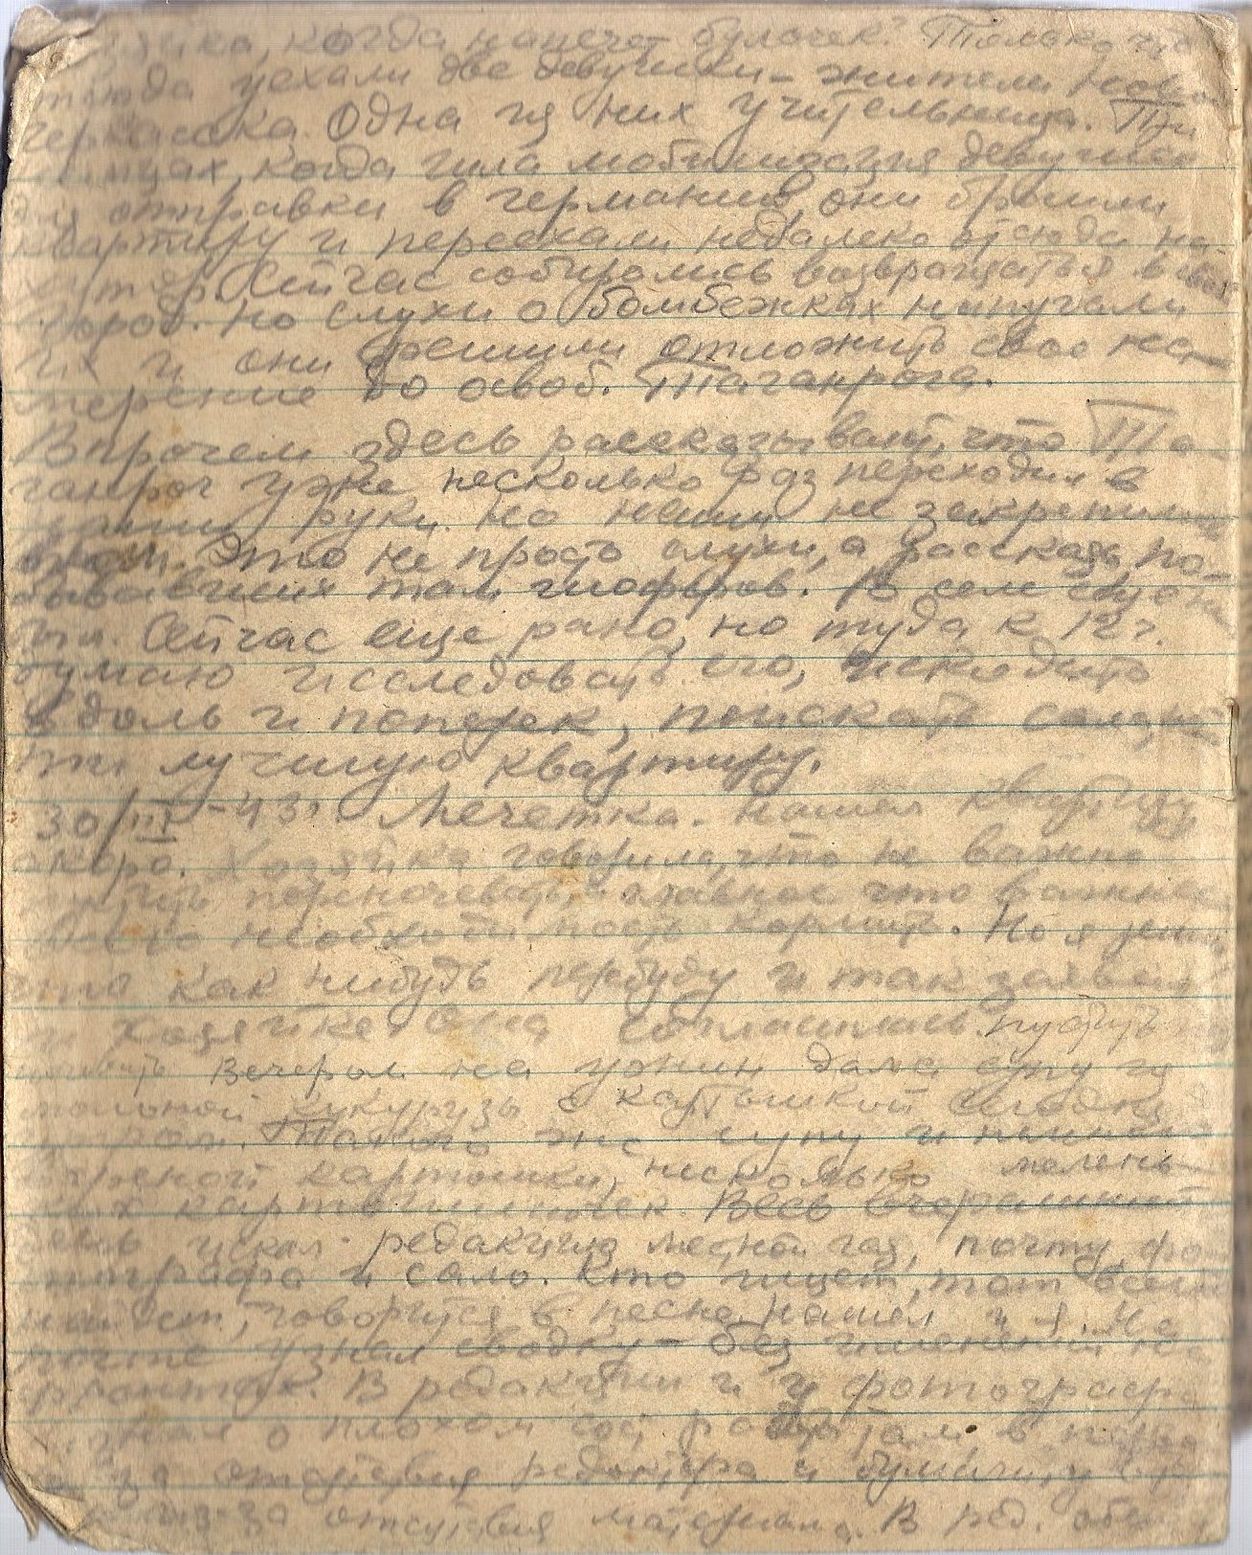 когда напечет булочек. Только что
уехали две девушки - жители Ново
черкасска. Одна из них учительница. При
когда шла мобилизация девушек
для отправки в германию, они бросили
квартиру и переехали недалеко отсюда на
хутор. Сейчас собирались возвращаться в свой
город. но слухи о бомбежках напугали
их и они решили отложить свое на-
мерение до освоб. Таганрога.
Впрочем здесь рассказывали, что Та-
ганрог уже несколько раз переходил в
наши руки но наши не закрепили
Это не просто слухи, а рассказы по-
бывавших там шоферов. В селе
Сейчас еще рано, но туда к 12 ч.
думаю исследовать его, исходить
вдоль и поперек, поискать
лучшую квартиру.
30/III-43. Мечетка. нашел квартиру
скоро. Хозяйка говорила, что не важно
пустить переночевать, главное что важнее
необходимость кормить. Но я
что как нибудь перебуду и так заявил
и хозяйке. Она согласилась пустить
Вечером на ужин дала супу из
молоной кукурузы с картошкой Сегодня
утром. Такого же супу и
жареной картошки, несколько мелень-
ких картошиночек. Весь вчерашний
день искал редакцию местной газ, почту, фо
тографа и сало. Кто ищет, тот всегда
найдет, говорится в песне нашел и я. На
почте узнал сводку - без изменений на
фронтах. В редакции и у фотографа
узнал о плохом их работам, в перво
из-за отсутствия редактора и бумаги, у
из-за отсутствия материала. В ред.